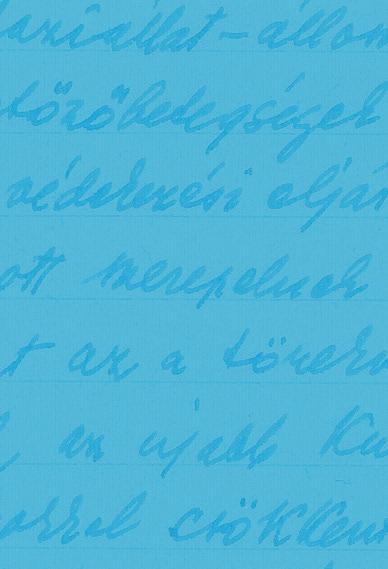 háziállat-állom
fertőzőbetegségek
védekezési eljár
ott szerepelnek
t az a törekv
az ujabb ku
okkal csökken